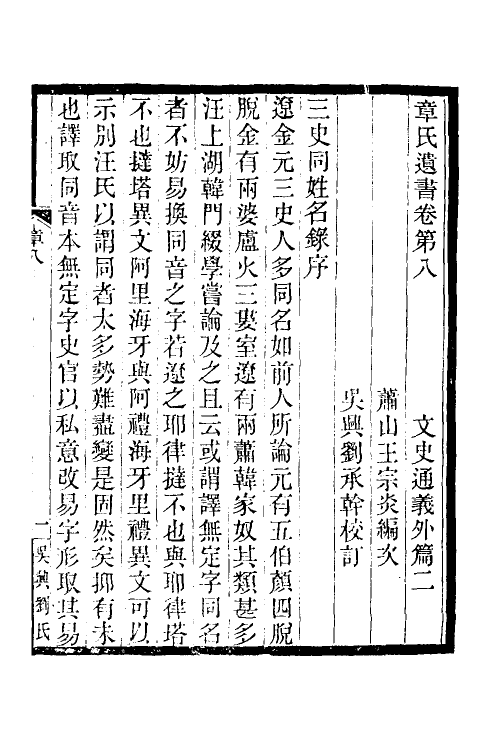 章氏遺書卷第八 文史通義外篇二
蕭山王宗炎編次
吳興劉承幹校訂
三史同姓名錄序
遼金元三史人多同名如前人所論元有五伯顏四脫
脫金有兩婆盧火三婁室遼有兩蕭韓家奴其類甚多
汪上湖韓門綴學嘗論及之且云或謂譯無定字同名
者不妨易換同音之字若遼之耶律撻不也與耶律塔
不也撻塔異文阿里海牙與阿禮海牙里禮異文可以
示別汪氏以謂同者太多勢難盡變是固然矣抑有未
也譯取同音本無定字史官以私意改易字形取其易
章八
一
吳興劉氏